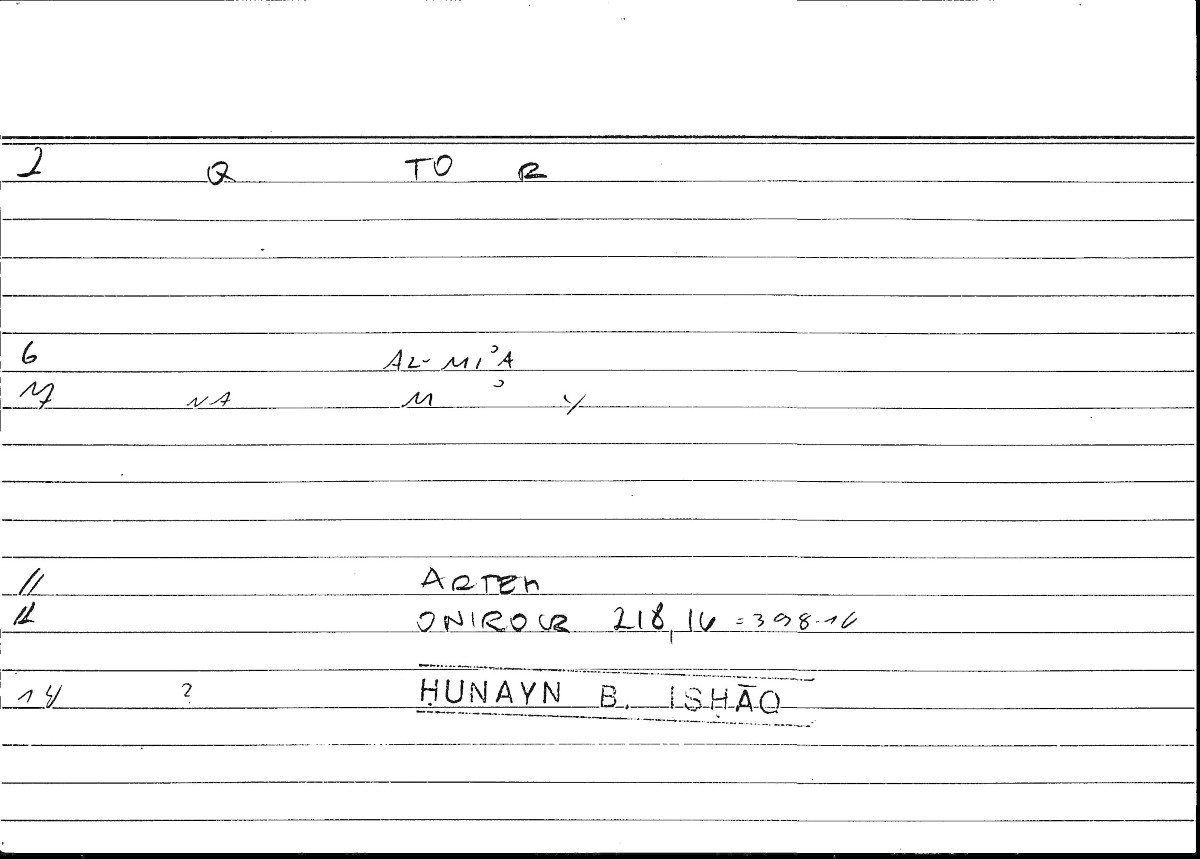 2 Q TO R
6 AL-MIʾA
7 NA M ʾ Y
11 ARTEM
12 ONIROCR 218,16 = 398.16
14 ? ḤUNAYN B. ISḤĀQ